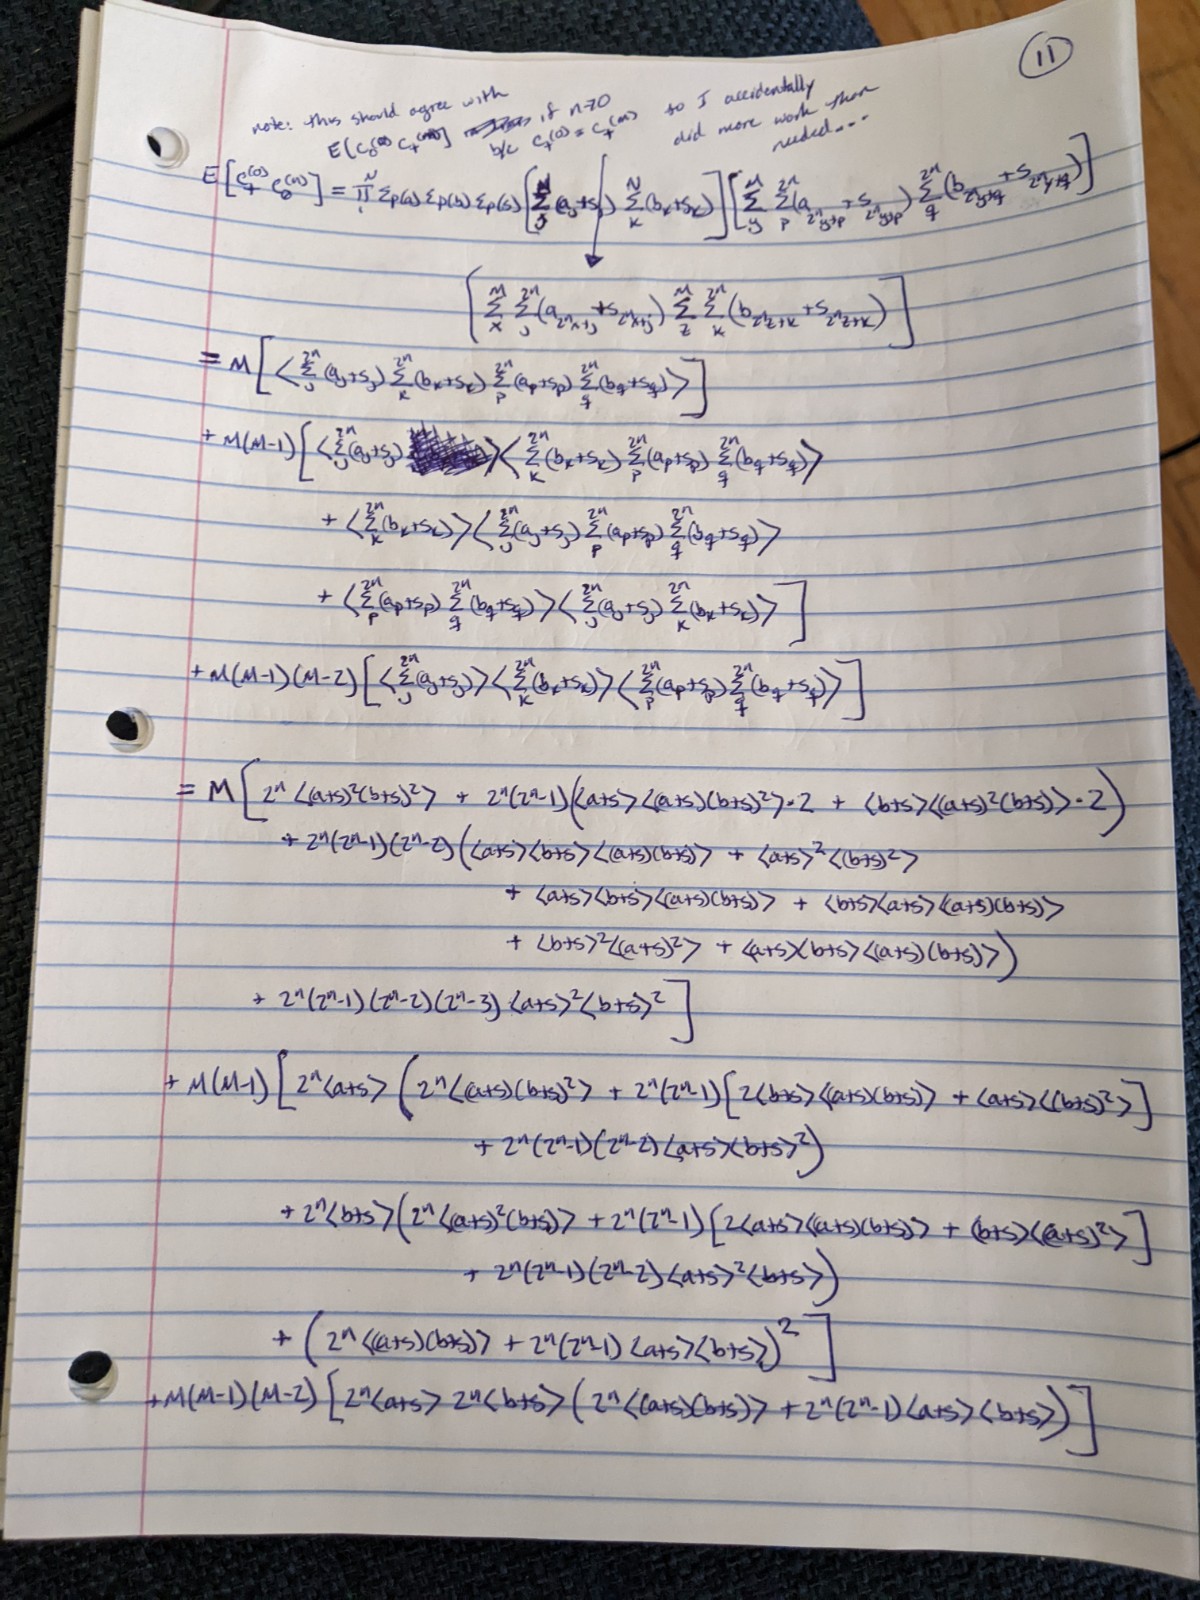 11
note: this should agree with
E[C_δ^(0) C_+^(n)] if n→0 so I accidentally
b/c C_+^(0) = C_+^(n) did more work than
needed...
E[C_+^(0) C_δ^(n)] = Π_i^N Σp(a) Σp(b) Σp(s) [Σ_j^N (a_j+s_j) Σ_k^N (b_k+s_k)] [Σ_y^M Σ_p^{2^n} (a_{2^n y+p} + s_{2^n y+p}) Σ_q^{2^n} (b_{2^n y+q} + s_{2^n y+q})]
[Σ_x^M Σ_j^{2^n} (a_{2^n x+j} + s_{2^n x+j}) Σ_z^M Σ_k^{2^n} (b_{2^n z+k} + s_{2^n z+k})]
= M [<Σ_j^{2^n} (a_j+s_j) Σ_k^{2^n} (b_k+s_k) Σ_p^{2^n} (a_p+s_p) Σ_q^{2^n} (b_q+s_q)>]
+ M(M-1) [<Σ_j^{2^n} (a_j+s_j)> <Σ_k^{2^n} (b_k+s_k) Σ_p^{2^n} (a_p+s_p) Σ_q^{2^n} (b_q+s_q)>
+ <Σ_k^{2^n} (b_k+s_k)> <Σ_j^{2^n} (a_j+s_j) Σ_p^{2^n} (a_p+s_p) Σ_q^{2^n} (b_q+s_q)>
+ <Σ_p^{2^n} (a_p+s_p) Σ_q^{2^n} (b_q+s_q)> <Σ_j^{2^n} (a_j+s_j) Σ_k^{2^n} (b_k+s_k)>]
+ M(M-1)(M-2) [<Σ_j^{2^n} (a_j+s_j)> <Σ_k^{2^n} (b_k+s_k)> <Σ_p^{2^n} (a_p+s_p) Σ_q^{2^n} (b_q+s_q)>]
= M [2^n <(a+s)²(b+s)²> + 2^n(2^n-1) (<a+s> <(a+s)(b+s)²>·2 + <b+s> <(a+s)²(b+s)>·2)
+ 2^n(2^n-1)(2^n-2) (<a+s><b+s><(a+s)(b+s)> + <a+s>² <(b+s)²>
+ <a+s><b+s><(a+s)(b+s)> + <b+s><a+s><(a+s)(b+s)>
+ <b+s>²<(a+s)²> + <a+s><b+s><(a+s)(b+s)>)
+ 2^n(2^n-1)(2^n-2)(2^n-3) <a+s>²<b+s>²]
+ M(M-1) [2^n<a+s> (2^n <(a+s)(b+s)²> + 2^n(2^n-1) [2<b+s><(a+s)(b+s)> + <a+s><(b+s)²>]
+ 2^n(2^n-1)(2^n-2) <a+s><b+s>²)
+ 2^n<b+s> (2^n <(a+s)²(b+s)> + 2^n(2^n-1) [2<a+s><(a+s)(b+s)> + <b+s><(a+s)²>]
+ 2^n(2^n-1)(2^n-2) <a+s>²<b+s>)
+ (2^n <(a+s)(b+s)> + 2^n(2^n-1) <a+s><b+s>)²]
+ M(M-1)(M-2) [2^n<a+s> 2^n<b+s> (2^n <(a+s)(b+s)> + 2^n(2^n-1) <a+s><b+s>)]